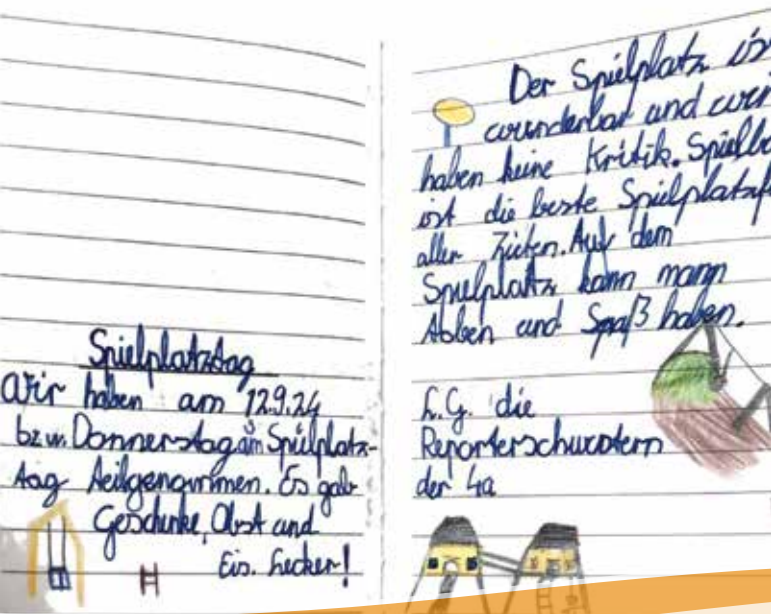 Spielplatztag
Wir haben am 12.9.24
bzw. Donnerstag am Spielplatz-
tag teilgenommen. Es gab
Geschenke, Obst und
Eis. Lecker!
Der Spielplatz
wunderbar und wir
haben keine Kritik.
ist die beste
aller Zeiten. Auf dem
Spielplatz kann mann
toben und Spaß haben.
L.G. die
Reporterschwestern
der 4a